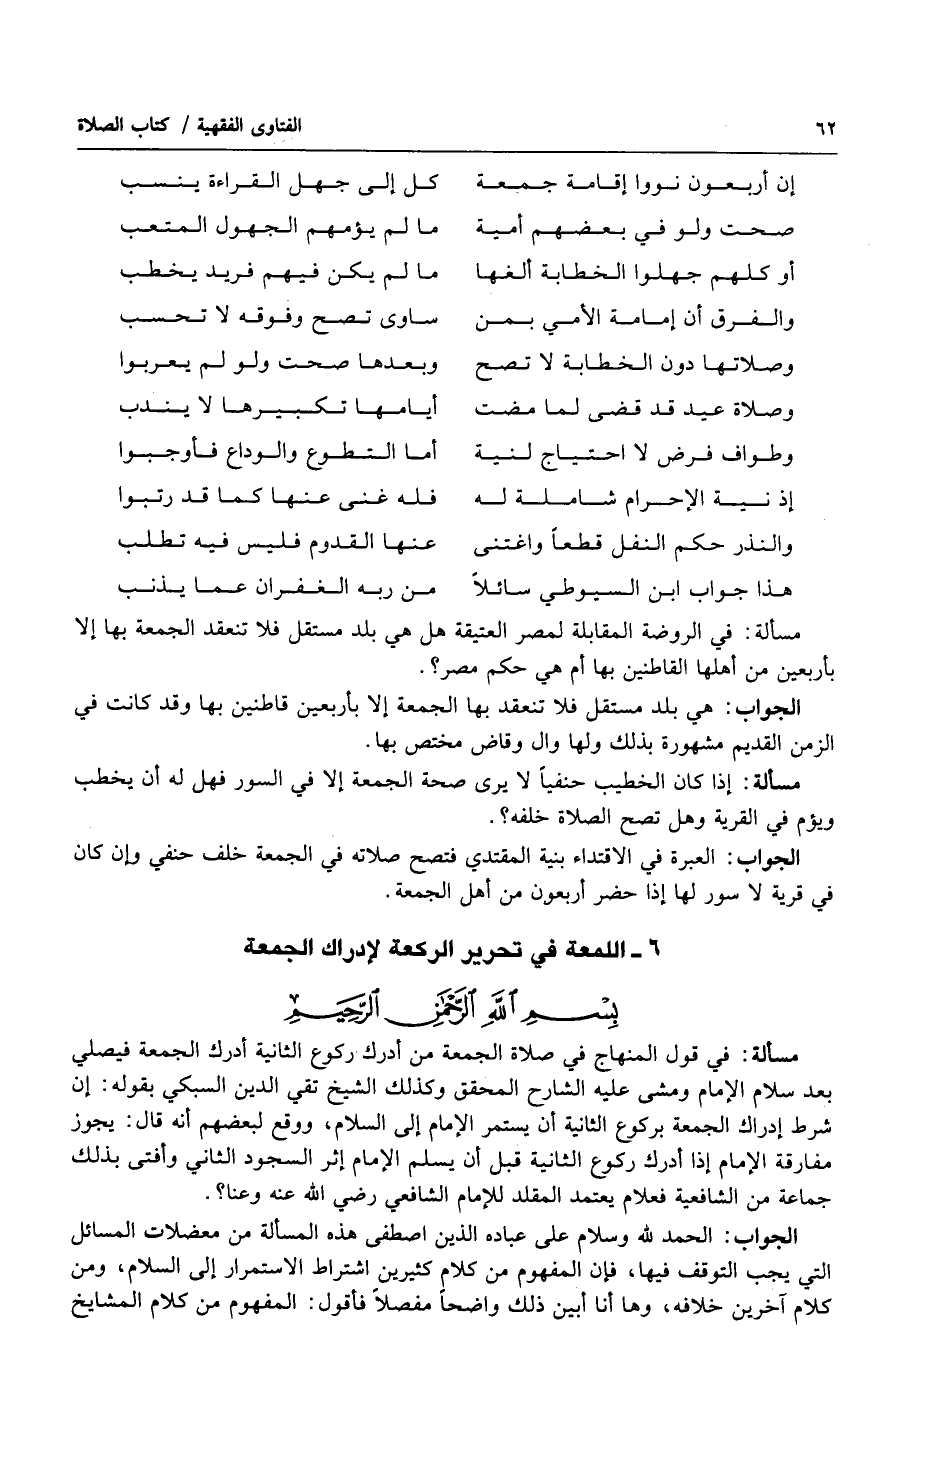 ٦٢ الفتاوى الفقهية / كتاب الصلاة
إن أربعون نووا إقامة جمعة كل إلى جهل القراءة ينسب
صحت ولو في بعضهم أمية ما لم يؤمهم الجهول المتعب
أو كلهم جهلوا الخطابة ألغها ما لم يكن فيهم فريد يخطب
والفرق أن إمامة الأمي بمن ساوى تصح وفوقه لا تحسب
وصلاتها دون الخطابة لا تصح وبعدها صحت ولو لم يعربوا
وصلاة عيد قد قضى لما مضت أيامها تكبيرها لا يندب
وطواف فرض لا احتياج لنية أما التطوع والوداع فأوجبوا
إذ نية الإحرام شاملة له فله غنى عنها كما قد رتبوا
والنذر حكم النفل قطعاً واغتنى عنها القدوم فليس فيه تطلب
هذا جواب ابن السيوطي سائلاً من ربه الغفران عما يذنب
مسألة: في الروضة المقابلة لمصر العتيقة هل هي بلد مستقل فلا تنعقد الجمعة بها إلا
بأربعين من أهلها القاطنين بها أم هي حكم مصر؟.
الجواب: هي بلد مستقل فلا تنعقد بها الجمعة إلا بأربعين قاطنين بها وقد كانت في
الزمن القديم مشهورة بذلك ولها وال وقاض مختص بها.
مسألة: إذا كان الخطيب حنفياً لا يرى صحة الجمعة إلا في السور فهل له أن يخطب
ويؤم في القرية وهل تصح الصلاة خلفه؟.
الجواب: العبرة في الاقتداء بنية المقتدي فتصح صلاته في الجمعة خلف حنفي وإن كان
في قرية لا سور لها إذا حضر أربعون من أهل الجمعة.
٦ ـ اللمعة في تحرير الركعة لإدراك الجمعة
بسم الله الرحمن الرحيم
مسألة: في قول المنهاج في صلاة الجمعة من أدرك ركوع الثانية أدرك الجمعة فيصلي
بعد سلام الإمام ومشى عليه الشارح المحقق وكذلك الشيخ تقي الدين السبكي بقوله: إن
شرط إدراك الجمعة بركوع الثانية أن يستمر الإمام إلى السلام، ووقع لبعضهم أنه قال: يجوز
مفارقة الإمام إذا أدرك ركوع الثانية قبل أن يسلم الإمام إثر السجود الثاني وأفتى بذلك
جماعة من الشافعية فعلام يعتمد المقلد للإمام الشافعي رضي الله عنه وعنا؟.
الجواب: الحمد لله وسلام على عباده الذين اصطفى هذه المسألة من معضلات المسائل
التي يجب التوقف فيها، فإن المفهوم من كلام كثيرين اشتراط الاستمرار إلى السلام، ومن
كلام آخرين خلافه، وها أنا أبين ذلك واضحاً مفصلاً فأقول: المفهوم من كلام المشايخ